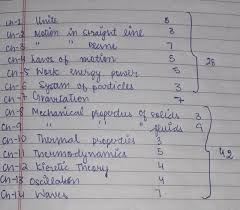 Ch-1 Units 5
Ch-2 Motion in straight line 3
Ch-3 " " plane 7
Ch-4 Laws of motion 5
Ch-5 Work energy power 5
Ch-6 System of particles 3
Ch-7 Gravitation 7
28
Ch-8 Mechanical properties of solids 3
Ch-9 " " " fluids 9
Ch-10 Thermal properties 3
Ch-11 Thermodynamics 5
Ch-12 Kinetic Theory 4
Ch-13 Oscillation 4
Ch-14 Waves 7
42